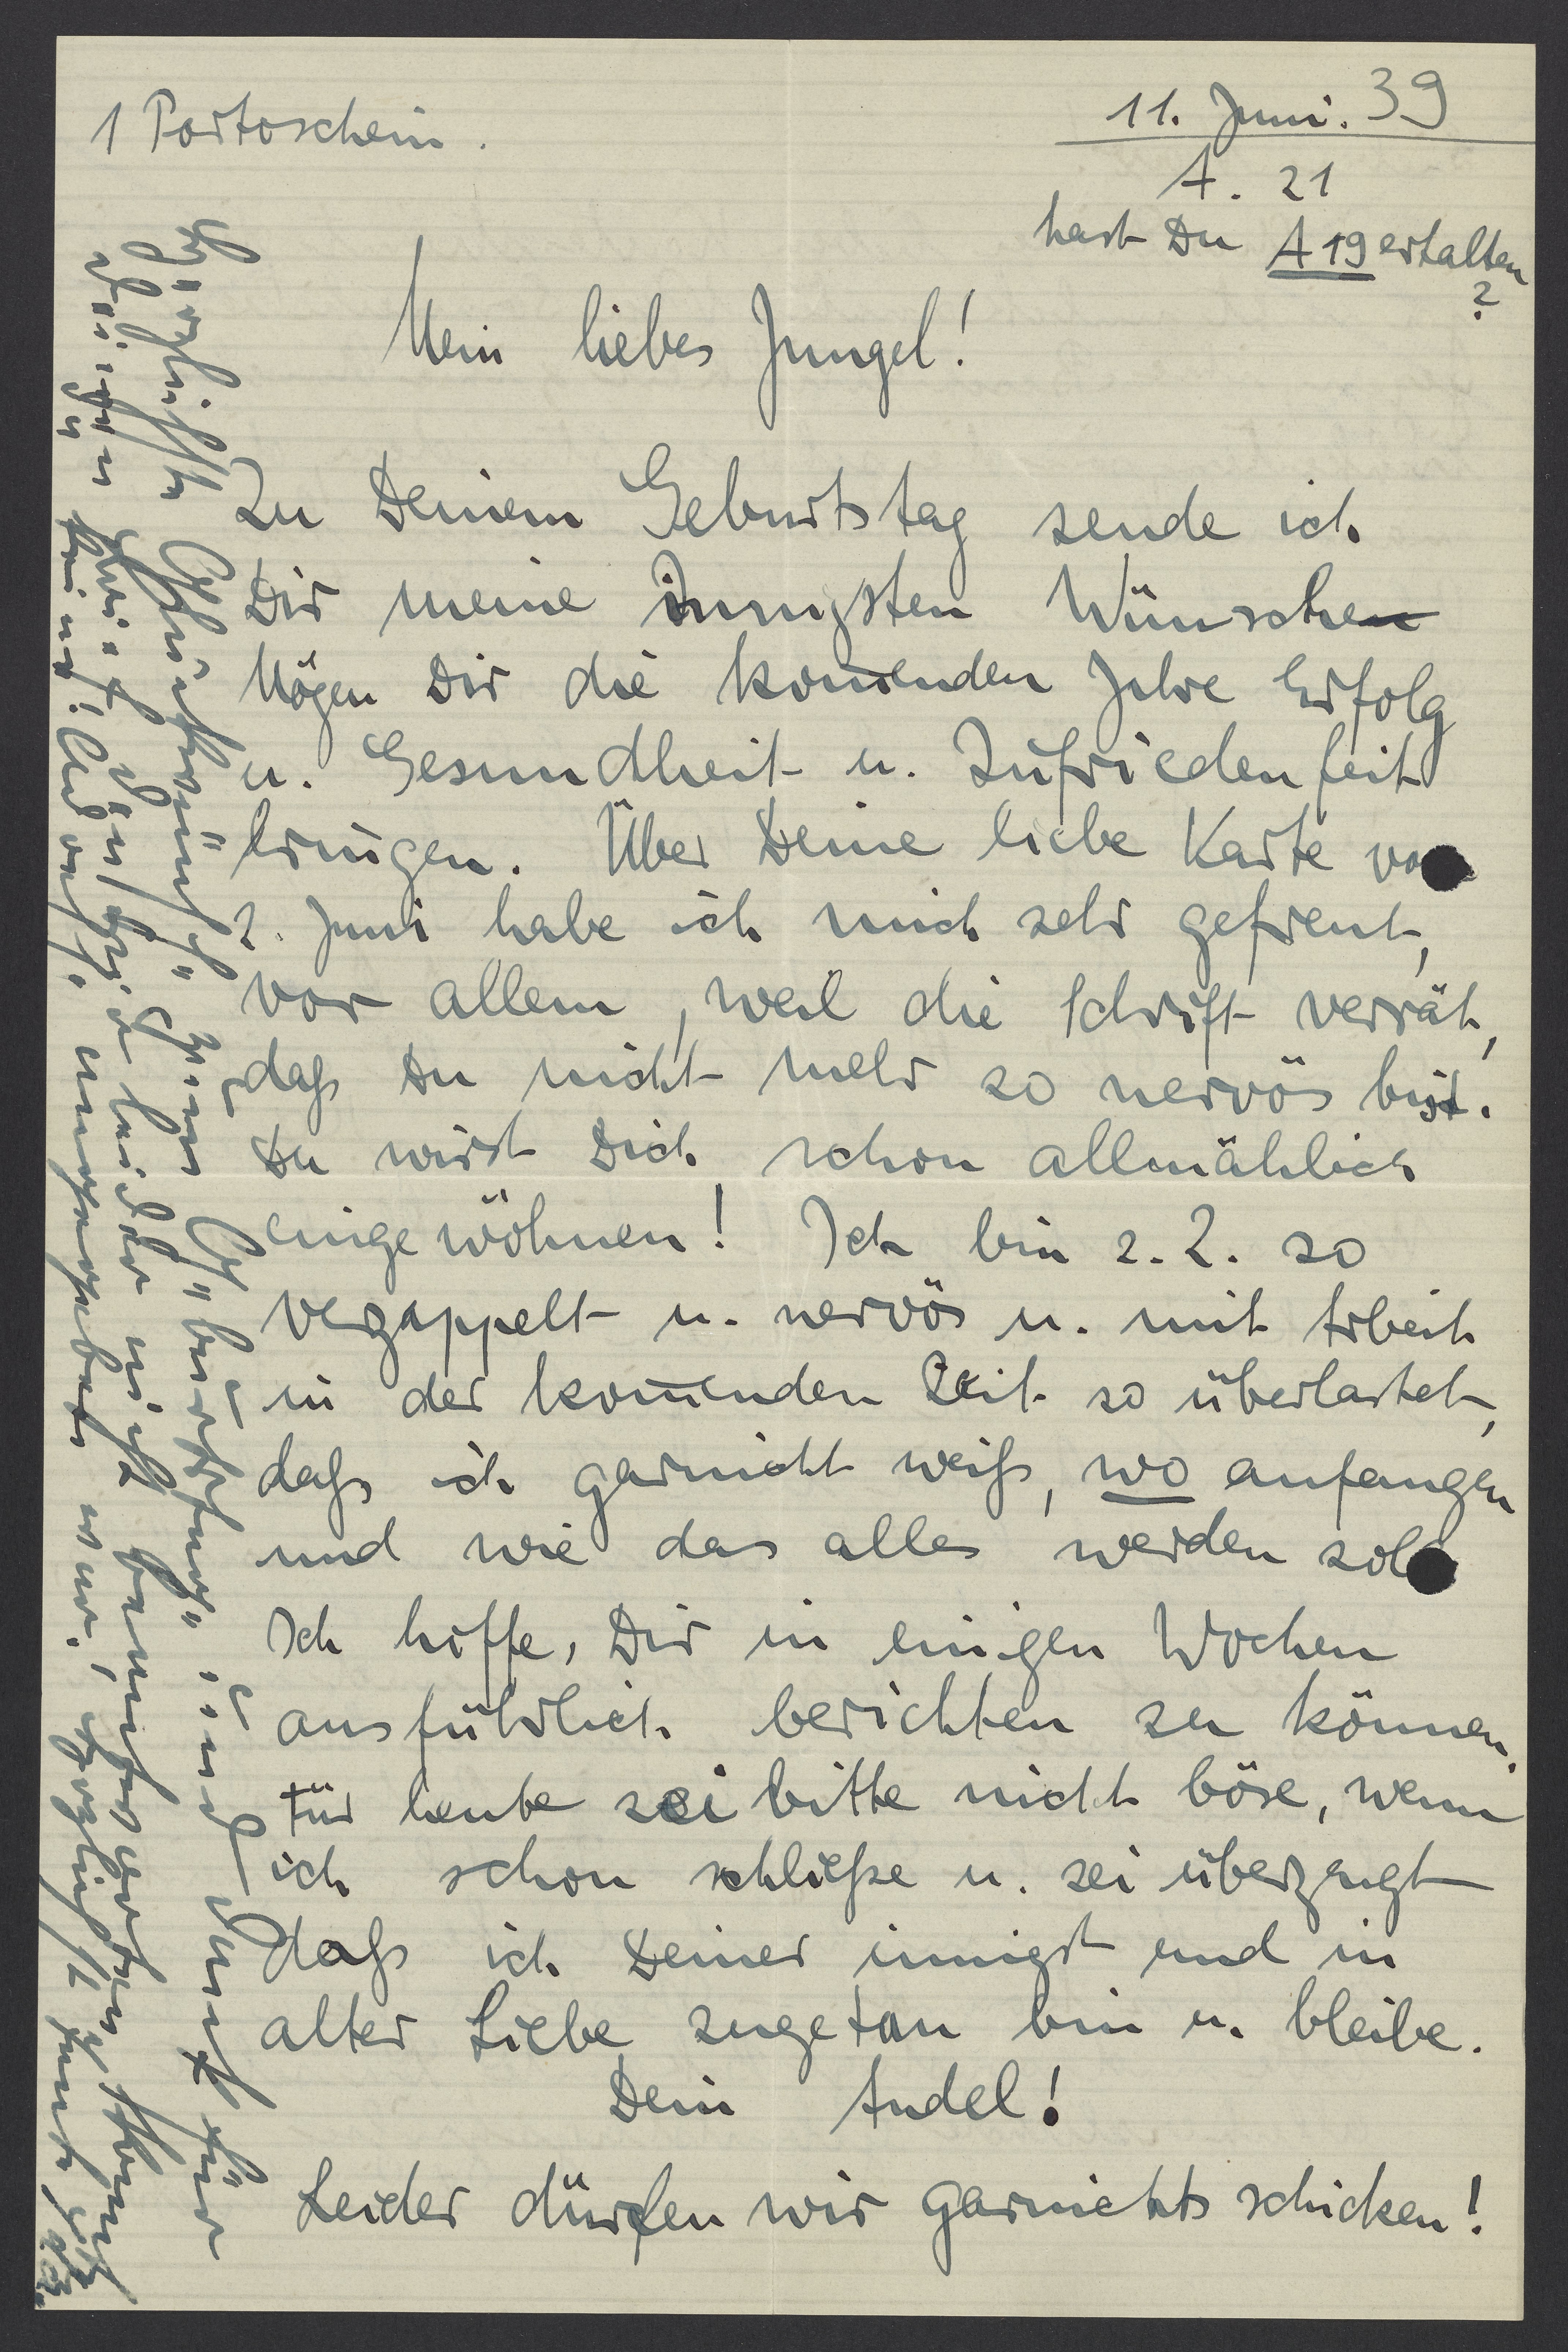 1 Portoschein.
11. Juni. 39
A. 21
hast Du A19 erhalten
?
Mein liebes Jungel!
Zu Deinem Geburtstag sende ich
Dir meine innigsten Wünsche
Mögen Dir die kom̄enden Jahre Erfolg
u. Gesundheit u. Zufriedenheit
bringen. Über Deine liebe Karte vo
2. Juni habe ich mich sehr gefreut,
vor allem, weil die Schrift verrät,
daß Du nicht mehr so nervös bist.
Du wirst Dich schon allmählich
eingewöhnen! Ich bin z. Z. so
verzappelt u. nervös u. mit Arbeit
in der kom̄enden Zeit so überlastet,
daß ich garnicht weiß, wo anfangen
und wie das alles werden sol
Ich hoffe, Dir in einigen Wochen
ausführlich berichten zu können.
Für heute sei bitte nicht böse, wenn
ich schon schließe u. sei überzeugt
daß ich Deiner innigst und in
alter Liebe zugetan bin u. bleibe.
Dein Andel!
Leider dürfen wir garnichts schicken!
Herzlichste Glückwünsche zum Geburtstage und Dank für
Deinen Brief, der leider nicht
ein unangenehm war. Herzlichst